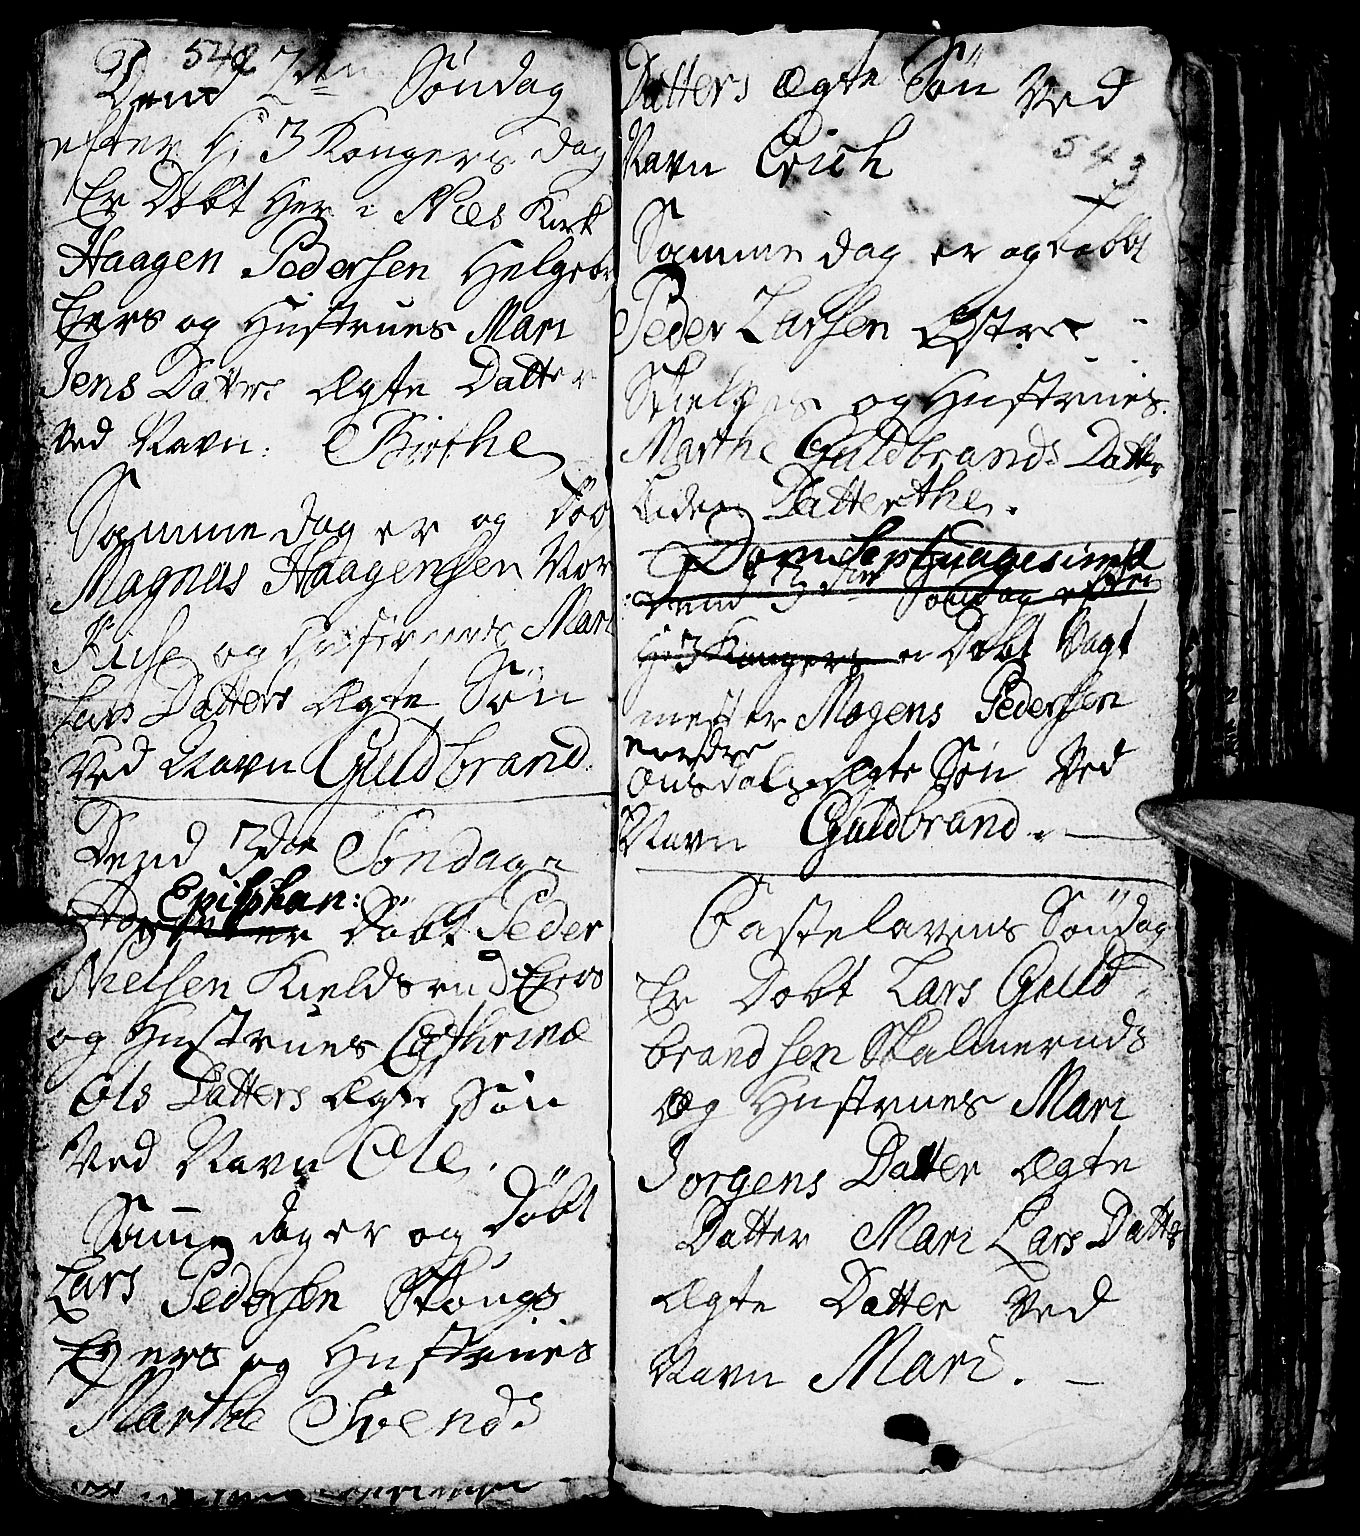 542
Dend 2den Söndag
efter H. 3 Kongers dag
Er Döbt Her i Næs Kirk
Haagen Pedersen Helgeby
Eyers og Hustrues Mari
Jens Datters Ægte Datter
Ved Navn: Birthe
Samme dag er og Döb
Magnus Haagensen
og Hustrues Mari
Lars Datters Ægte Sön
Ved Navn Guldbrand.
Dend 3die Söndag
Epiphan:
er Döbt Peder
Nielsen Kieldsrud Eyers
og Hustrues Cathrinæ
Ols Datters Ægte Sön
Ved Navn Ole.
Samme dag er og Döbt
Lars Pedersen Skougs
Eyers og Hustrues
Marthe Svends
Datters Ægte Sön Ved
Navn Erich
543
Samme dag er og Döbt
Peder Larsen Östre
og Hustrues
Marthe Guldbrands Datter
Datter
Dom Septuagesima
Dend 3die Söndag efter
H. 3 Kongers er Döbt Vagt
mester Mogens Pedersen
Onsdals Ægte Sön Ved
Navn Guldbrand.
Fastelavens Söndag
Er Döbt Lars Guld
brandsen Skalmeruds
og Hustrues Mari
Jorgens Datter Ægte
Datter Mari Lars Datters
Ægte Datter Ved
Navn Mari.